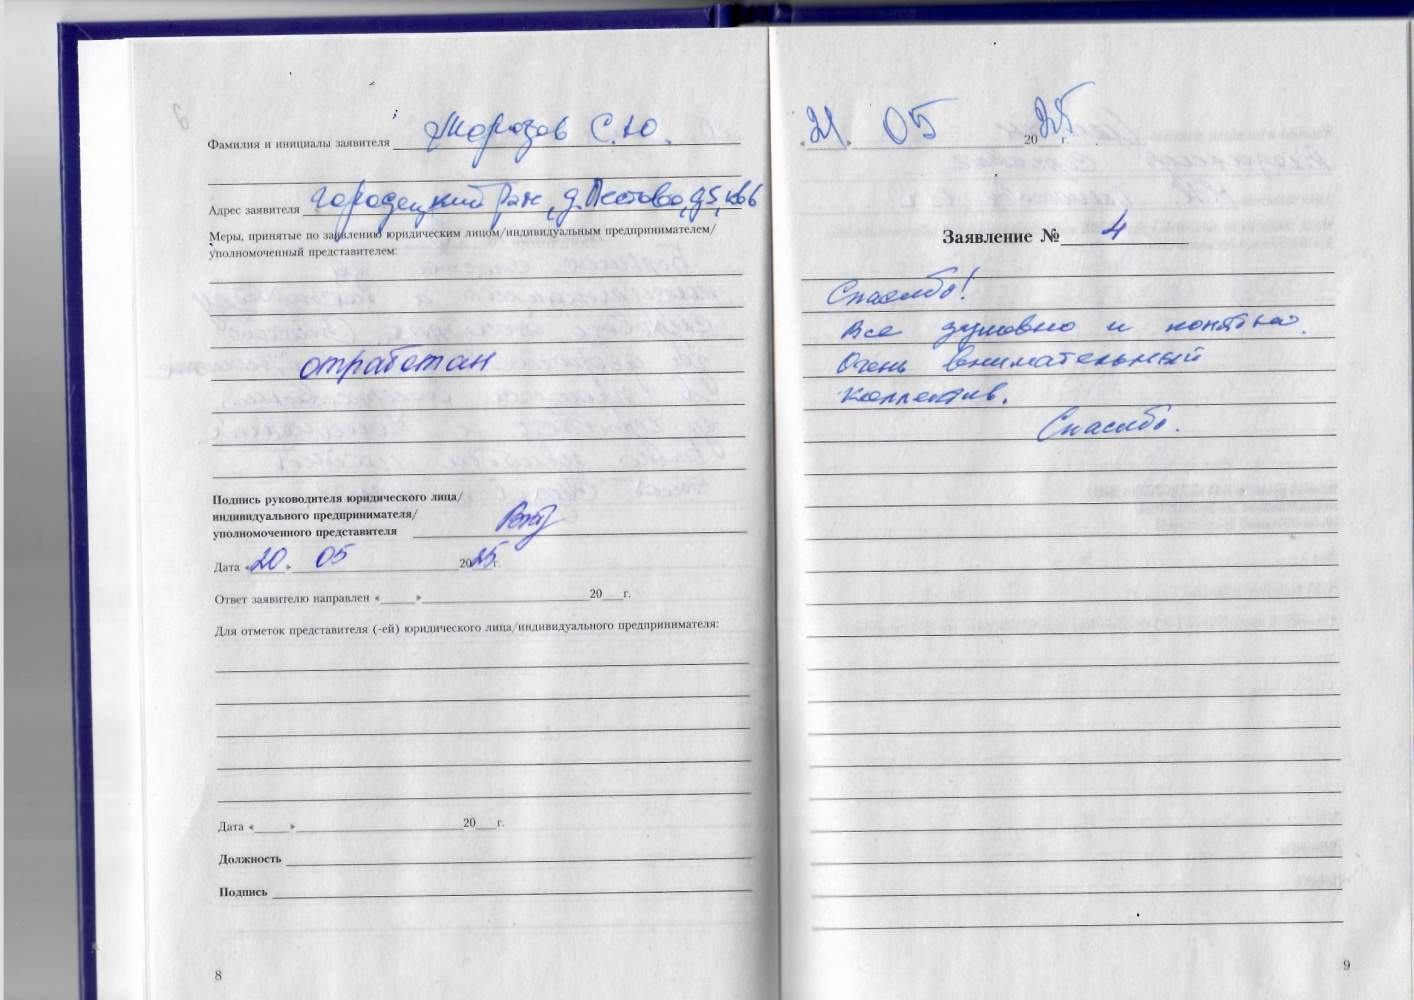 Фамилия и инициалы заявителя Морозов С.Ю.
Адрес заявителя Городецкий р-н, д. Пестово, д5, кв6
Меры, принятые по заявлению юридическим лицом/индивидуальным предпринимателем/
уполномоченный представителем:
отработан
Подпись руководителя юридического лица/
индивидуального предпринимателя/
уполномоченного представителя
Дата «20» 05 2025г.
Ответ заявителю направлен «_____»_____ 20___г.
Для отметок представителя (-ей) юридического лица/индивидуального предпринимателя:
Дата «_____»_____ 20___г.
Должность
Подпись
8
«21» 05 2025 г.
Заявление № 4
Спасибо!
Все душевно и понятно.
Очень внимательный
коллектив.
Спасибо.
9